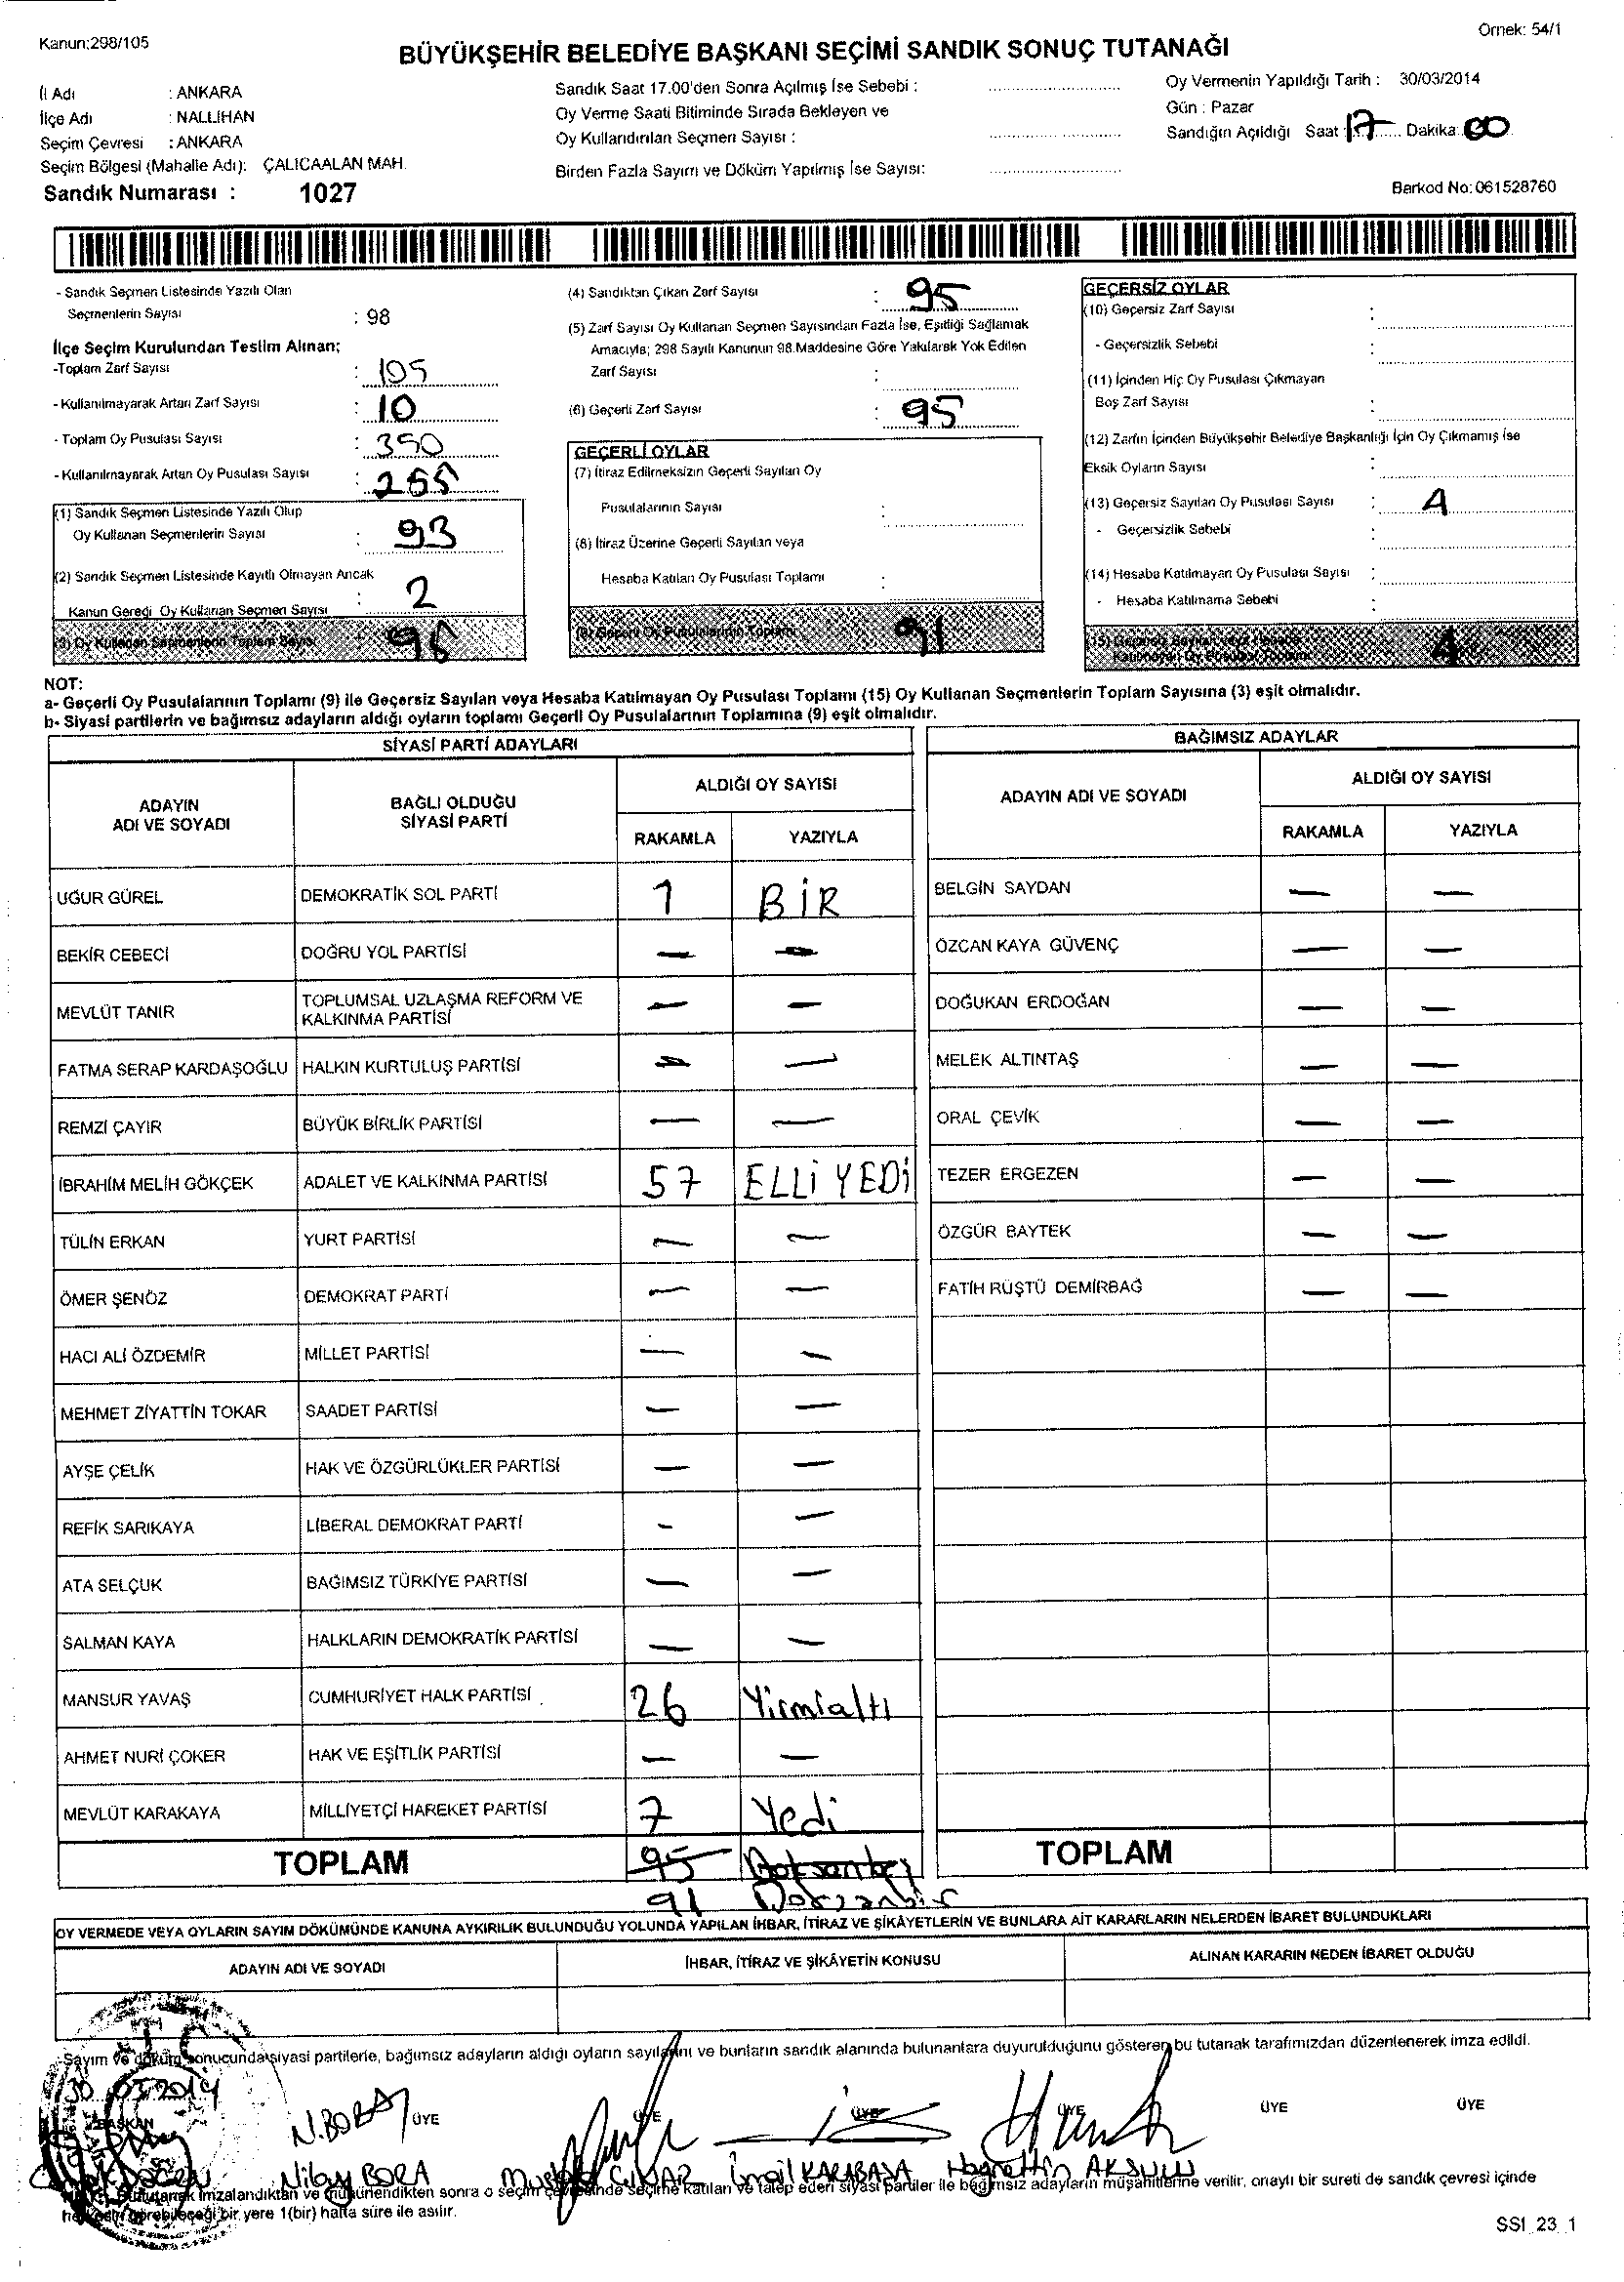 Kanun:298/105
Örnek: 54/1
BÜYÜKŞEHİR BELEDİYE BAŞKANI SEÇİMİ SANDIK SONUÇ TUTANAĞI
İl Adı : ANKARA
İlçe Adı : NALLIHAN
Seçim Çevresi : ANKARA
Seçim Bölgesi (Mahalle Adı): ÇALICAALAN MAH.
Sandık Numarası : 1027
Sandık Saat 17.00'den Sonra Açılmış İse Sebebi :
Oy Verme Saati Bitiminde Sırada Bekleyen ve
Oy Kullandırılan Seçmen Sayısı :
Birden Fazla Sayım ve Döküm Yapılmış İse Sayısı:
Oy Vermenin Yapıldığı Tarih : 30/03/2014
Gün : Pazar
Sandığın Açıldığı Saat : 17 Dakika: 00
Barkod No: 061528760
- Sandık Seçmen Listesinde Yazılı Olan
Seçmenlerin Sayısı : 98
İlçe Seçim Kurulundan Teslim Alınan;
-Toplam Zarf Sayısı : 105
- Kullanılmayarak Artan Zarf Sayısı : 10
- Toplam Oy Pusulası Sayısı : 350
- Kullanılmayarak Artan Oy Pusulası Sayısı : 255
(1) Sandık Seçmen Listesinde Yazılı Olup
Oy Kullanan Seçmenlerin Sayısı : 93
(2) Sandık Seçmen Listesinde Kayıtlı Olmayan Ancak
Kanun Gereği Oy Kullanan Seçmen Sayısı : 2
(3) Oy Kullanan Seçmenlerin Toplam Sayısı : 95
(4) Sandıktan Çıkan Zarf Sayısı : 95
(5) Zarf Sayısı Oy Kullanan Seçmen Sayısından Fazla İse, Eşitliği Sağlamak
Amacıyla; 298 Sayılı Kanunun 98.Maddesine Göre Yakılarak Yok Edilen
Zarf Sayısı :
(6) Geçerli Zarf Sayısı : 95
GEÇERLİ OYLAR
(7) İtiraz Edilmeksizin Geçerli Sayılan Oy
Pusulalarının Sayısı :
(8) İtiraz Üzerine Geçerli Sayılan veya
Hesaba Katılan Oy Pusulası Toplamı :
(9) Geçerli Oy Pusulalarının Toplamı 91
GEÇERSİZ OYLAR
(10) Geçersiz Zarf Sayısı :
- Geçersizlik Sebebi :
(11) İçinden Hiç Oy Pusulası Çıkmayan
Boş Zarf Sayısı :
(12) Zarfın İçinden Büyükşehir Belediye Başkanlığı İçin Oy Çıkmamış İse
Eksik Oyların Sayısı :
(13) Geçersiz Sayılan Oy Pusulası Sayısı : 4
- Geçersizlik Sebebi :
(14) Hesaba Katılmayan Oy Pusulası Sayısı :
- Hesaba Katılmama Sebebi :
(15) Geçersiz Sayılan veya Hesaba
Katılmayan Oy Pusulası Toplamı 4
NOT:
a- Geçerli Oy Pusulalarının Toplamı (9) ile Geçersiz Sayılan veya Hesaba Katılmayan Oy Pusulası Toplamı (15) Oy Kullanan Seçmenlerin Toplam Sayısına (3) eşit olmalıdır.
b- Siyasi partilerin ve bağımsız adayların aldığı oyların toplamı Geçerli Oy Pusulalarının Toplamına (9) eşit olmalıdır.
SİYASİ PARTİ ADAYLARI
ADAYIN
ADI VE SOYADI
BAĞLI OLDUĞU
SİYASİ PARTİ
ALDIĞI OY SAYISI
RAKAMLA YAZIYLA
UĞUR GÜREL DEMOKRATİK SOL PARTİ 1 BİR
BEKİR CEBECİ DOĞRU YOL PARTİSİ — —
MEVLÜT TANIR TOPLUMSAL UZLAŞMA REFORM VE
KALKINMA PARTİSİ — —
FATMA SERAP KARDAŞOĞLU HALKIN KURTULUŞ PARTİSİ — —
REMZİ ÇAYIR BÜYÜK BİRLİK PARTİSİ — —
İBRAHİM MELİH GÖKÇEK ADALET VE KALKINMA PARTİSİ 57 ELLİ YEDİ
TÜLİN ERKAN YURT PARTİSİ — —
ÖMER ŞENÖZ DEMOKRAT PARTİ — —
HACI ALİ ÖZDEMİR MİLLET PARTİSİ — —
MEHMET ZİYATTİN TOKAR SAADET PARTİSİ — —
AYŞE ÇELİK HAK VE ÖZGÜRLÜKLER PARTİSİ — —
REFİK SARIKAYA LİBERAL DEMOKRAT PARTİ — —
ATA SELÇUK BAĞIMSIZ TÜRKİYE PARTİSİ — —
SALMAN KAYA HALKLARIN DEMOKRATİK PARTİSİ — —
MANSUR YAVAŞ CUMHURİYET HALK PARTİSİ 26 Yirmialtı
AHMET NURİ ÇOKER HAK VE EŞİTLİK PARTİSİ — —
MEVLÜT KARAKAYA MİLLİYETÇİ HAREKET PARTİSİ 7 Yedi
TOPLAM 95 Doksanbeş
91 Doksanbir
BAĞIMSIZ ADAYLAR
ADAYIN ADI VE SOYADI
ALDIĞI OY SAYISI
RAKAMLA YAZIYLA
BELGİN SAYDAN — —
ÖZCAN KAYA GÜVENÇ — —
DOĞUKAN ERDOĞAN — —
MELEK ALTINTAŞ — —
ORAL ÇEVİK — —
TEZER ERGEZEN — —
ÖZGÜR BAYTEK — —
FATİH RÜŞTÜ DEMİRBAĞ — —
TOPLAM
OY VERMEDE VEYA OYLARIN SAYIM DÖKÜMÜNDE KANUNA AYKIRILIK BULUNDUĞU YOLUNDA YAPILAN İHBAR, İTİRAZ VE ŞİKÂYETLERİN VE BUNLARA AİT KARARLARIN NELERDEN İBARET BULUNDUKLARI
ADAYIN ADI VE SOYADI İHBAR, İTİRAZ VE ŞİKÂYETİN KONUSU ALINAN KARARIN NEDEN İBARET OLDUĞU
Sayım ve döküm sonucunda siyasi partilerle, bağımsız adayların aldığı oyların sayılarını ve bunların sandık alanında bulunanlara duyurulduğunu gösteren bu tutanak tarafımızdan düzenlenerek imza edildi.
30 03 2014
BAŞKAN ÜYE ÜYE ÜYE ÜYE ÜYE ÜYE
N.BORA
Nilay BORA Mustafa ÇINAR İsmail KARABAŞA Hayrettin AKSULU
imzalandıktan ve mühürlendikten sonra o seçim çevresinde seçime katılan ve talep eden siyasi partiler ile bağımsız adayların müşahitlerine verilir, onaylı bir sureti de sandık çevresi içinde
herkesin görebileceği bir yere 1(bir) hafta süre ile asılır.
SSI_23_1